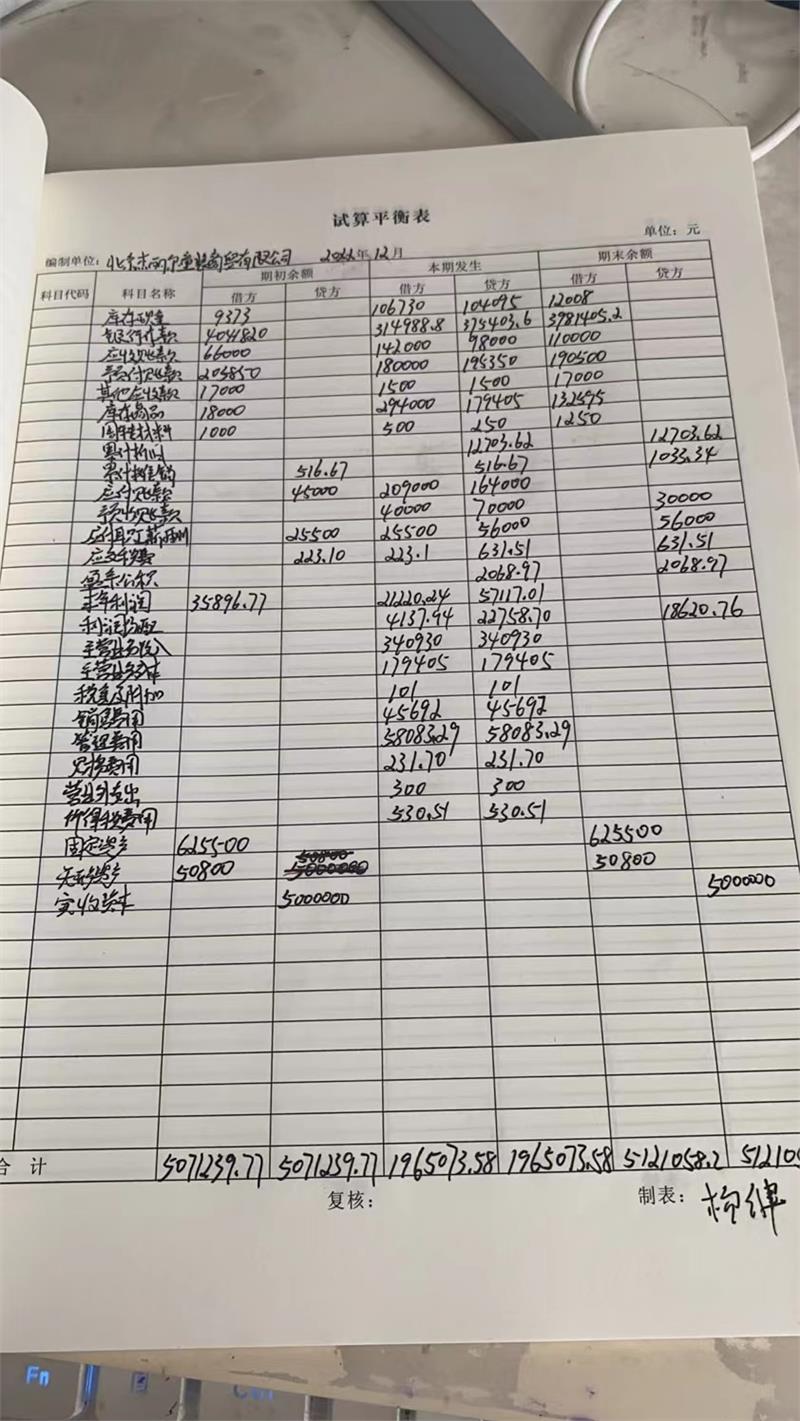 试算平衡表
单位：元
编制单位： 2022年12月
科目代码 科目名称 期初余额 本期发生 期末余额
借方 贷方 借方 贷方 借方 贷方
库存现金 9373 106730 104095 12008
银行存款 4041820 314988.8 375403.6 3981405.2
应收账款 66000 142000 98000 110000
预付账款 205850 180000 195350 190500
其他应收款 17000 1500 1500 17000
库存商品 18000 294000 179405 132595
周转材料 1000 500 250 1250
累计折旧 12703.62 12703.62
累计摊销 516.67 516.67 1033.34
应付账款 45000 209000 164000
预收账款 40000 70000 30000
应付职工薪酬 25500 25500 56000 56000
应交税费 223.10 223.1 631.51 631.51
盈余公积 2068.97 2068.97
本年利润 35896.77 21220.24 57117.01
利润分配 4137.94 22758.70 18620.76
主营业务收入 340930 340930
主营业务成本 179405 179405
税金及附加 101 101
销售费用 45692 45692
管理费用 58083.29 58083.29
财务费用 231.70 231.70
营业外支出 300 300
所得税费用 530.51 530.51
固定资产 625500 625500
无形资产 50800 50800
实收资本 5000000 5000000
合 计 5071239.77 5071239.77 1965073.58 1965073.58 5121058.2 512105
复核： 制表：
Fn